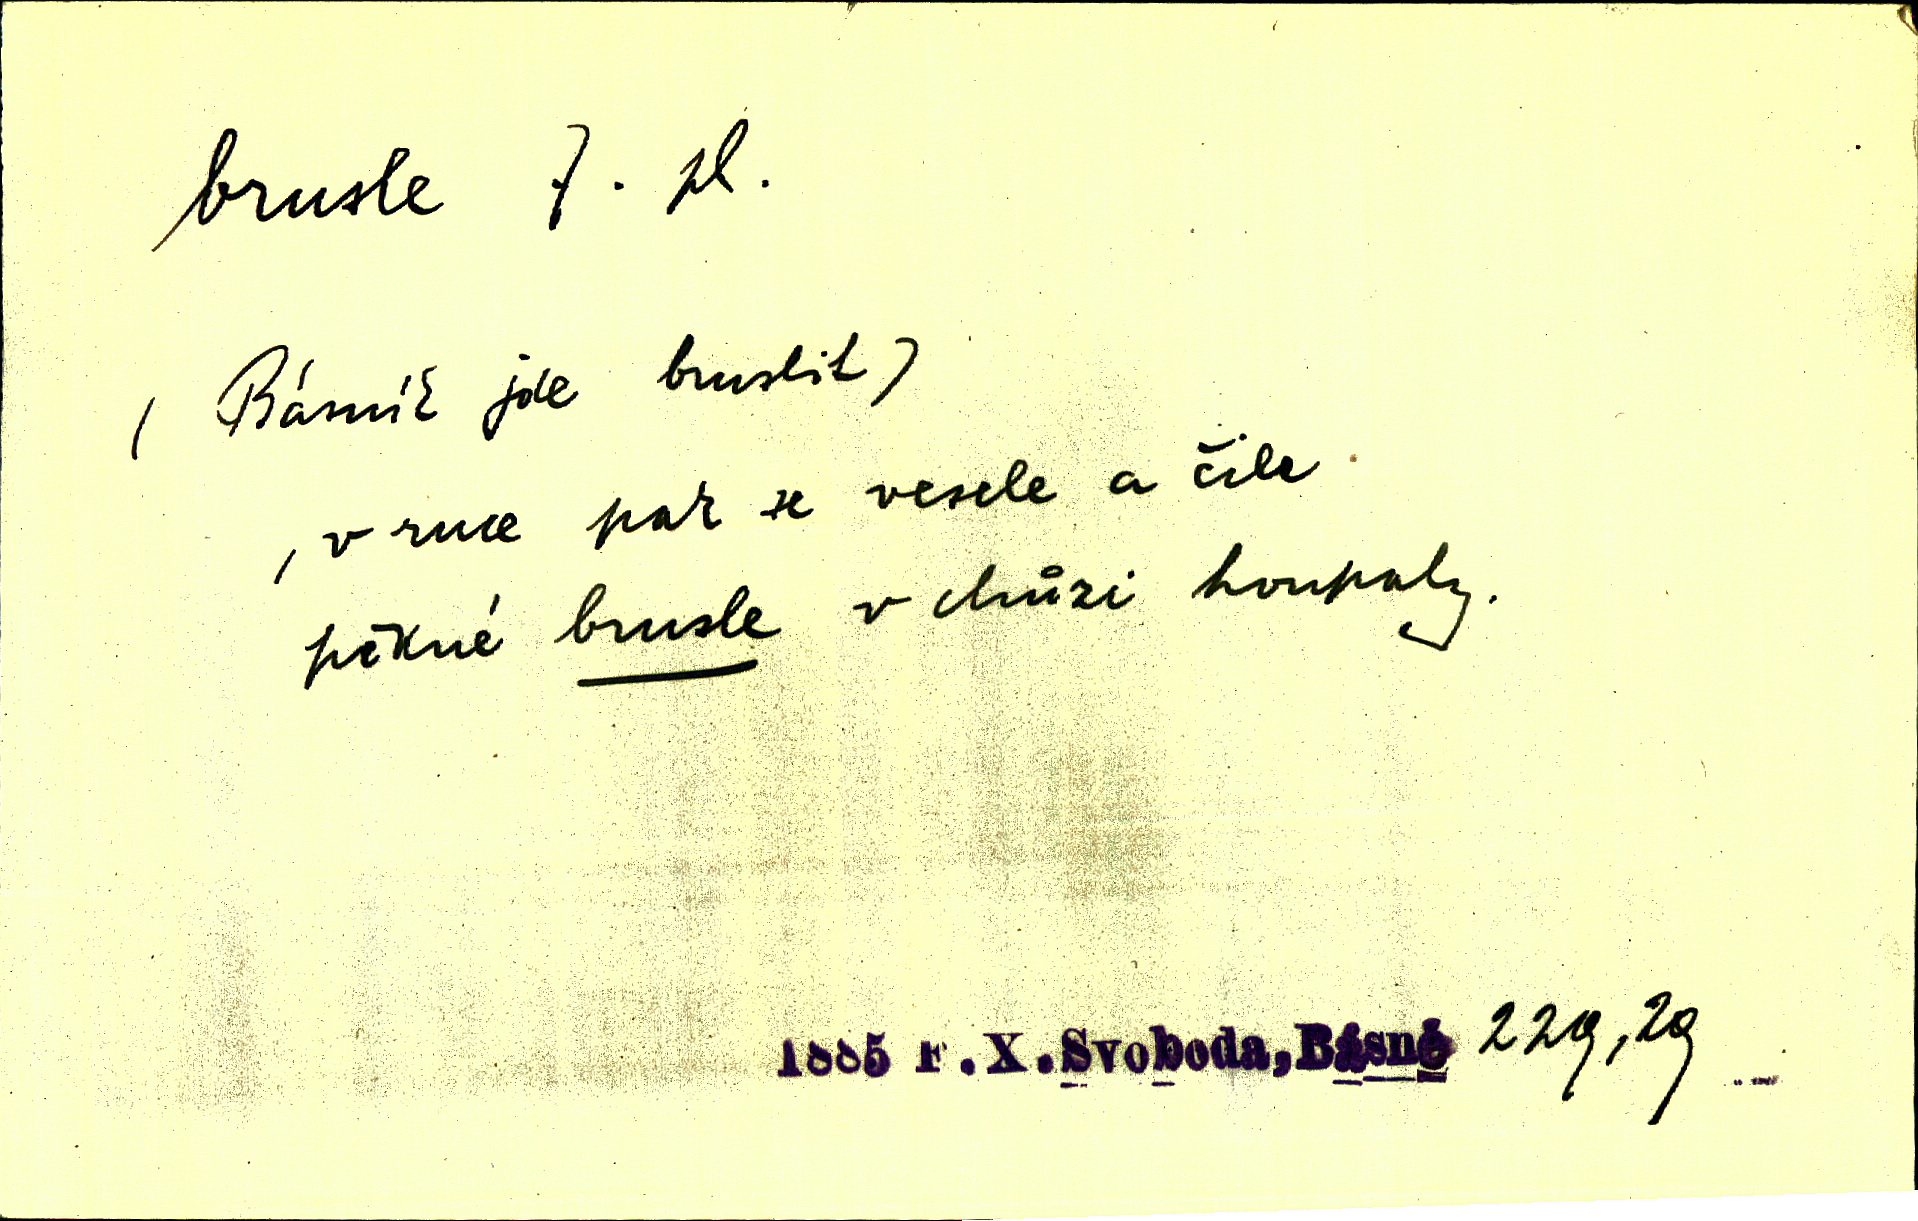 brusle f. pl.
( Básník jde bruslit )
, v ruce pak se vesele a čile
pěkné brusle v chůzi houpaly.
1885 F.X.Svoboda,Básně 229,29